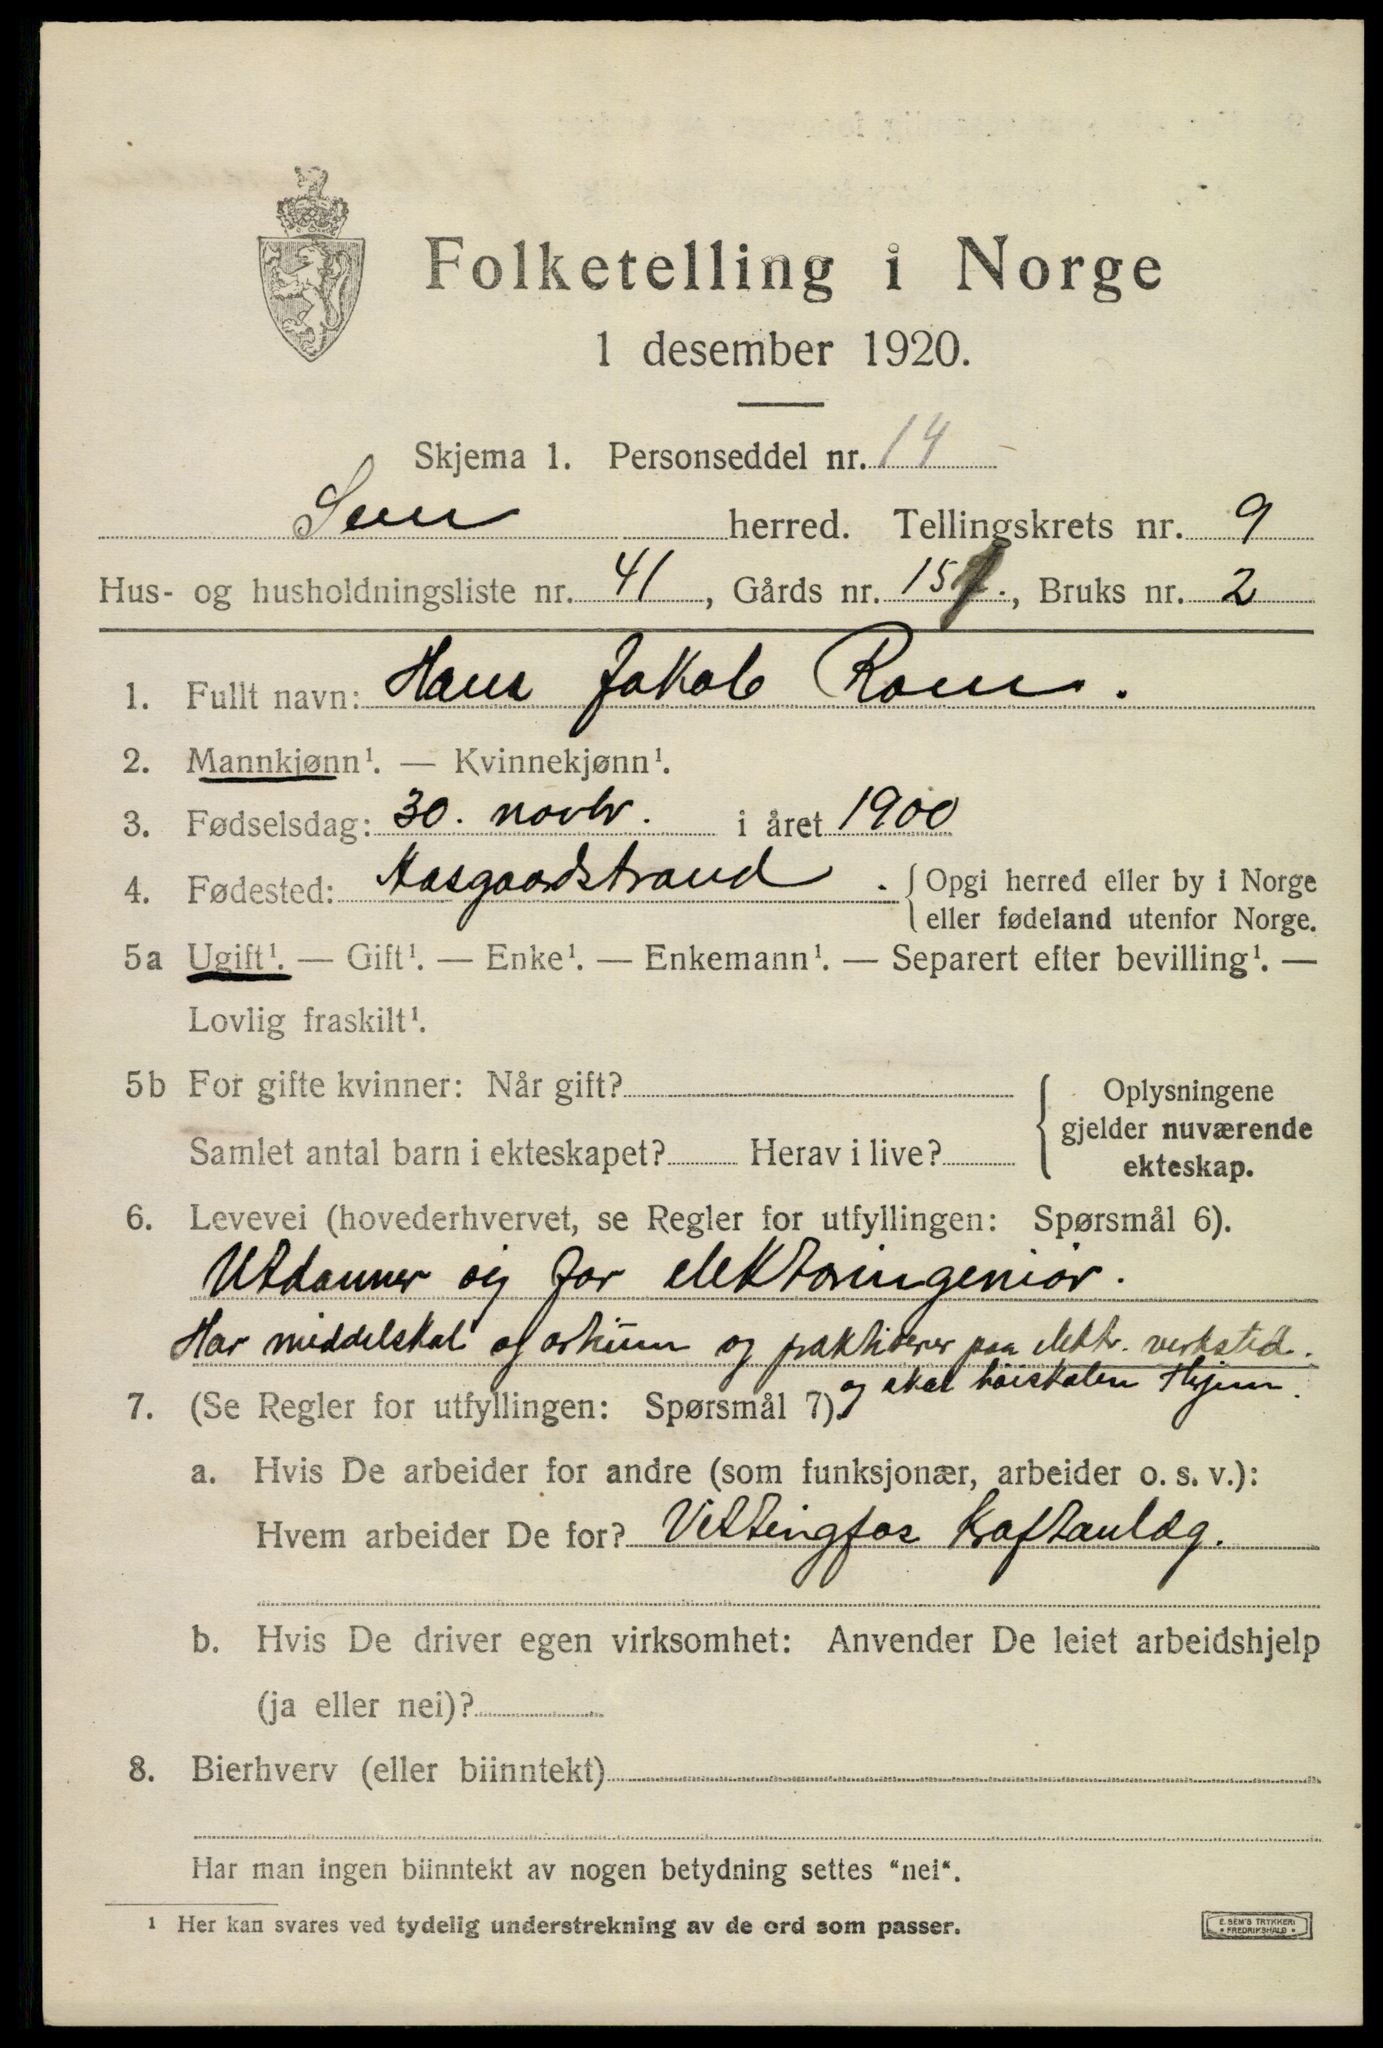 Folketelling i Norge
1 desember 1920.
Skjema 1. Personseddel nr. 14
Sem herred. Tellingskrets nr. 9
Hus- og husholdningsliste nr. 41, Gårds nr. 157., Bruks nr. 2
1. Fullt navn: Hans Jakob Rom.
2. Mannkjønn¹. — Kvinnekjønn¹.
3. Fødselsdag: 30. novbr. i året 1900
4. Fødested: Aasgaardstrand. { Opgi herred eller by i Norge
eller fødeland utenfor Norge.
5a Ugift¹. — Gift¹. — Enke¹. — Enkemann¹. — Separert efter bevilling¹. —
Lovlig fraskilt¹.
5b For gifte kvinner: Når gift?
Samlet antal barn i ekteskapet? Herav i live?
{ Oplysningene
gjelder nuværende
ekteskap.
6. Levevei (hovederhvervet, se Regler for utfyllingen: Spørsmål 6).
Utdanner sig for elektroingeniør.
Har middelskol og artium og praktiserer paa elektr. verksted.
og skal høiskolen
7. (Se Regler for utfyllingen: Spørsmål 7).
a. Hvis De arbeider for andre (som funksjonær, arbeider o. s. v.):
Hvem arbeider De for? Vittingfos Kraftanlæg.
b. Hvis De driver egen virksomhet: Anvender De leiet arbeidshjelp
(ja eller nei)?
8. Bierhverv (eller biinntekt)
Har man ingen biinntekt av nogen betydning settes "nei".
¹ Her kan svares ved tydelig understrekning av de ord som passer.
E. SEM'S TRYKKERI
• FREDRIKSHALD •